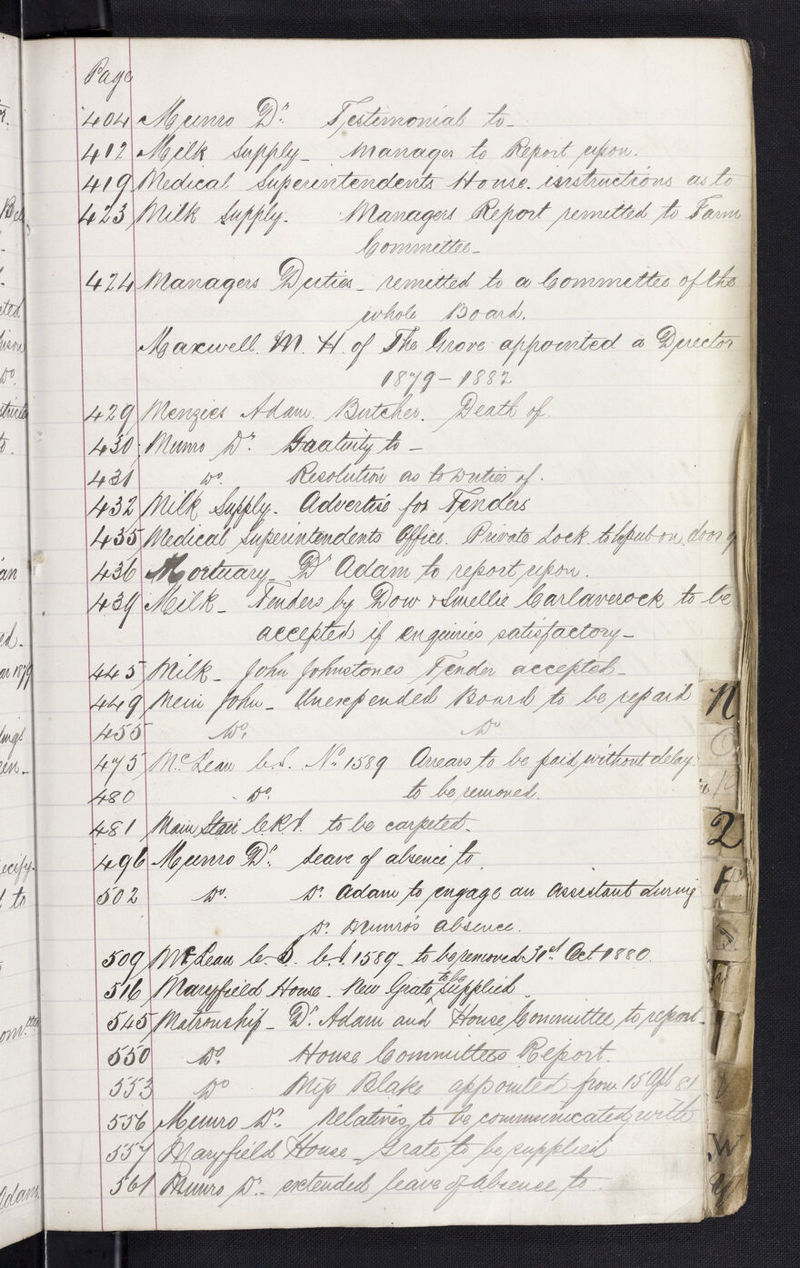 Page
404 Munro Dr. Testimonial to -
412 Milk Supply - Manager to Report upon.
419 Medical Superintendents House. instructions as to
423 Milk Supply. Managers Report remitted to Farm
Committee -
424 Managers Duties - remitted to a Committee of the
whole Board.
Maxwell. M. H. of The Grove appointed a Director
1879 - 1882
429 Menzies Adam. Butcher. Death of
430 Munro Dr. Gratuity to -
431 Do. Resolution as to Duties of.
432 Milk Supply. Advertise for Tenders
435 Medical Superintendents Office. Private Lock to be put on door of
436 Mortuary Dr Adam to report upon.
439 Milk - Tenders by Dow & Smellie Carlaverock to be
accepted if enquiries satisfactory -
445 Milk - John Johnstones Tender accepted -
449 Mein John - Unexpended Board to be repaid
455 Do. Do
475 McLean C.S. No. 1589 Arrears to be paid without delay
480 Do. to be removed.
481 Main Stair C.R.I. to be carpeted -
496 Munro Dr. Leave of absence to.
502 Do. Dr. Adam to engage an Assistant during
Dr. Munro's absence.
509 McLean C. S. C.I. 1589 - to be removed 31st Oct 1880.
516 Maryfield House - New Grate to be supplied
545 Matronship - Dr. Adam and House Committee to report -
550 Do. House Committees Report.
553 Do Miss Blake appointed from 15 Apl 81
556 Munro Dr. relatives to be communicated with
557 Maryfield House - Grate to be supplied
561 Munro Dr. - extended leave of absence to
N
O
P
2
R
S
T
V
W
Y